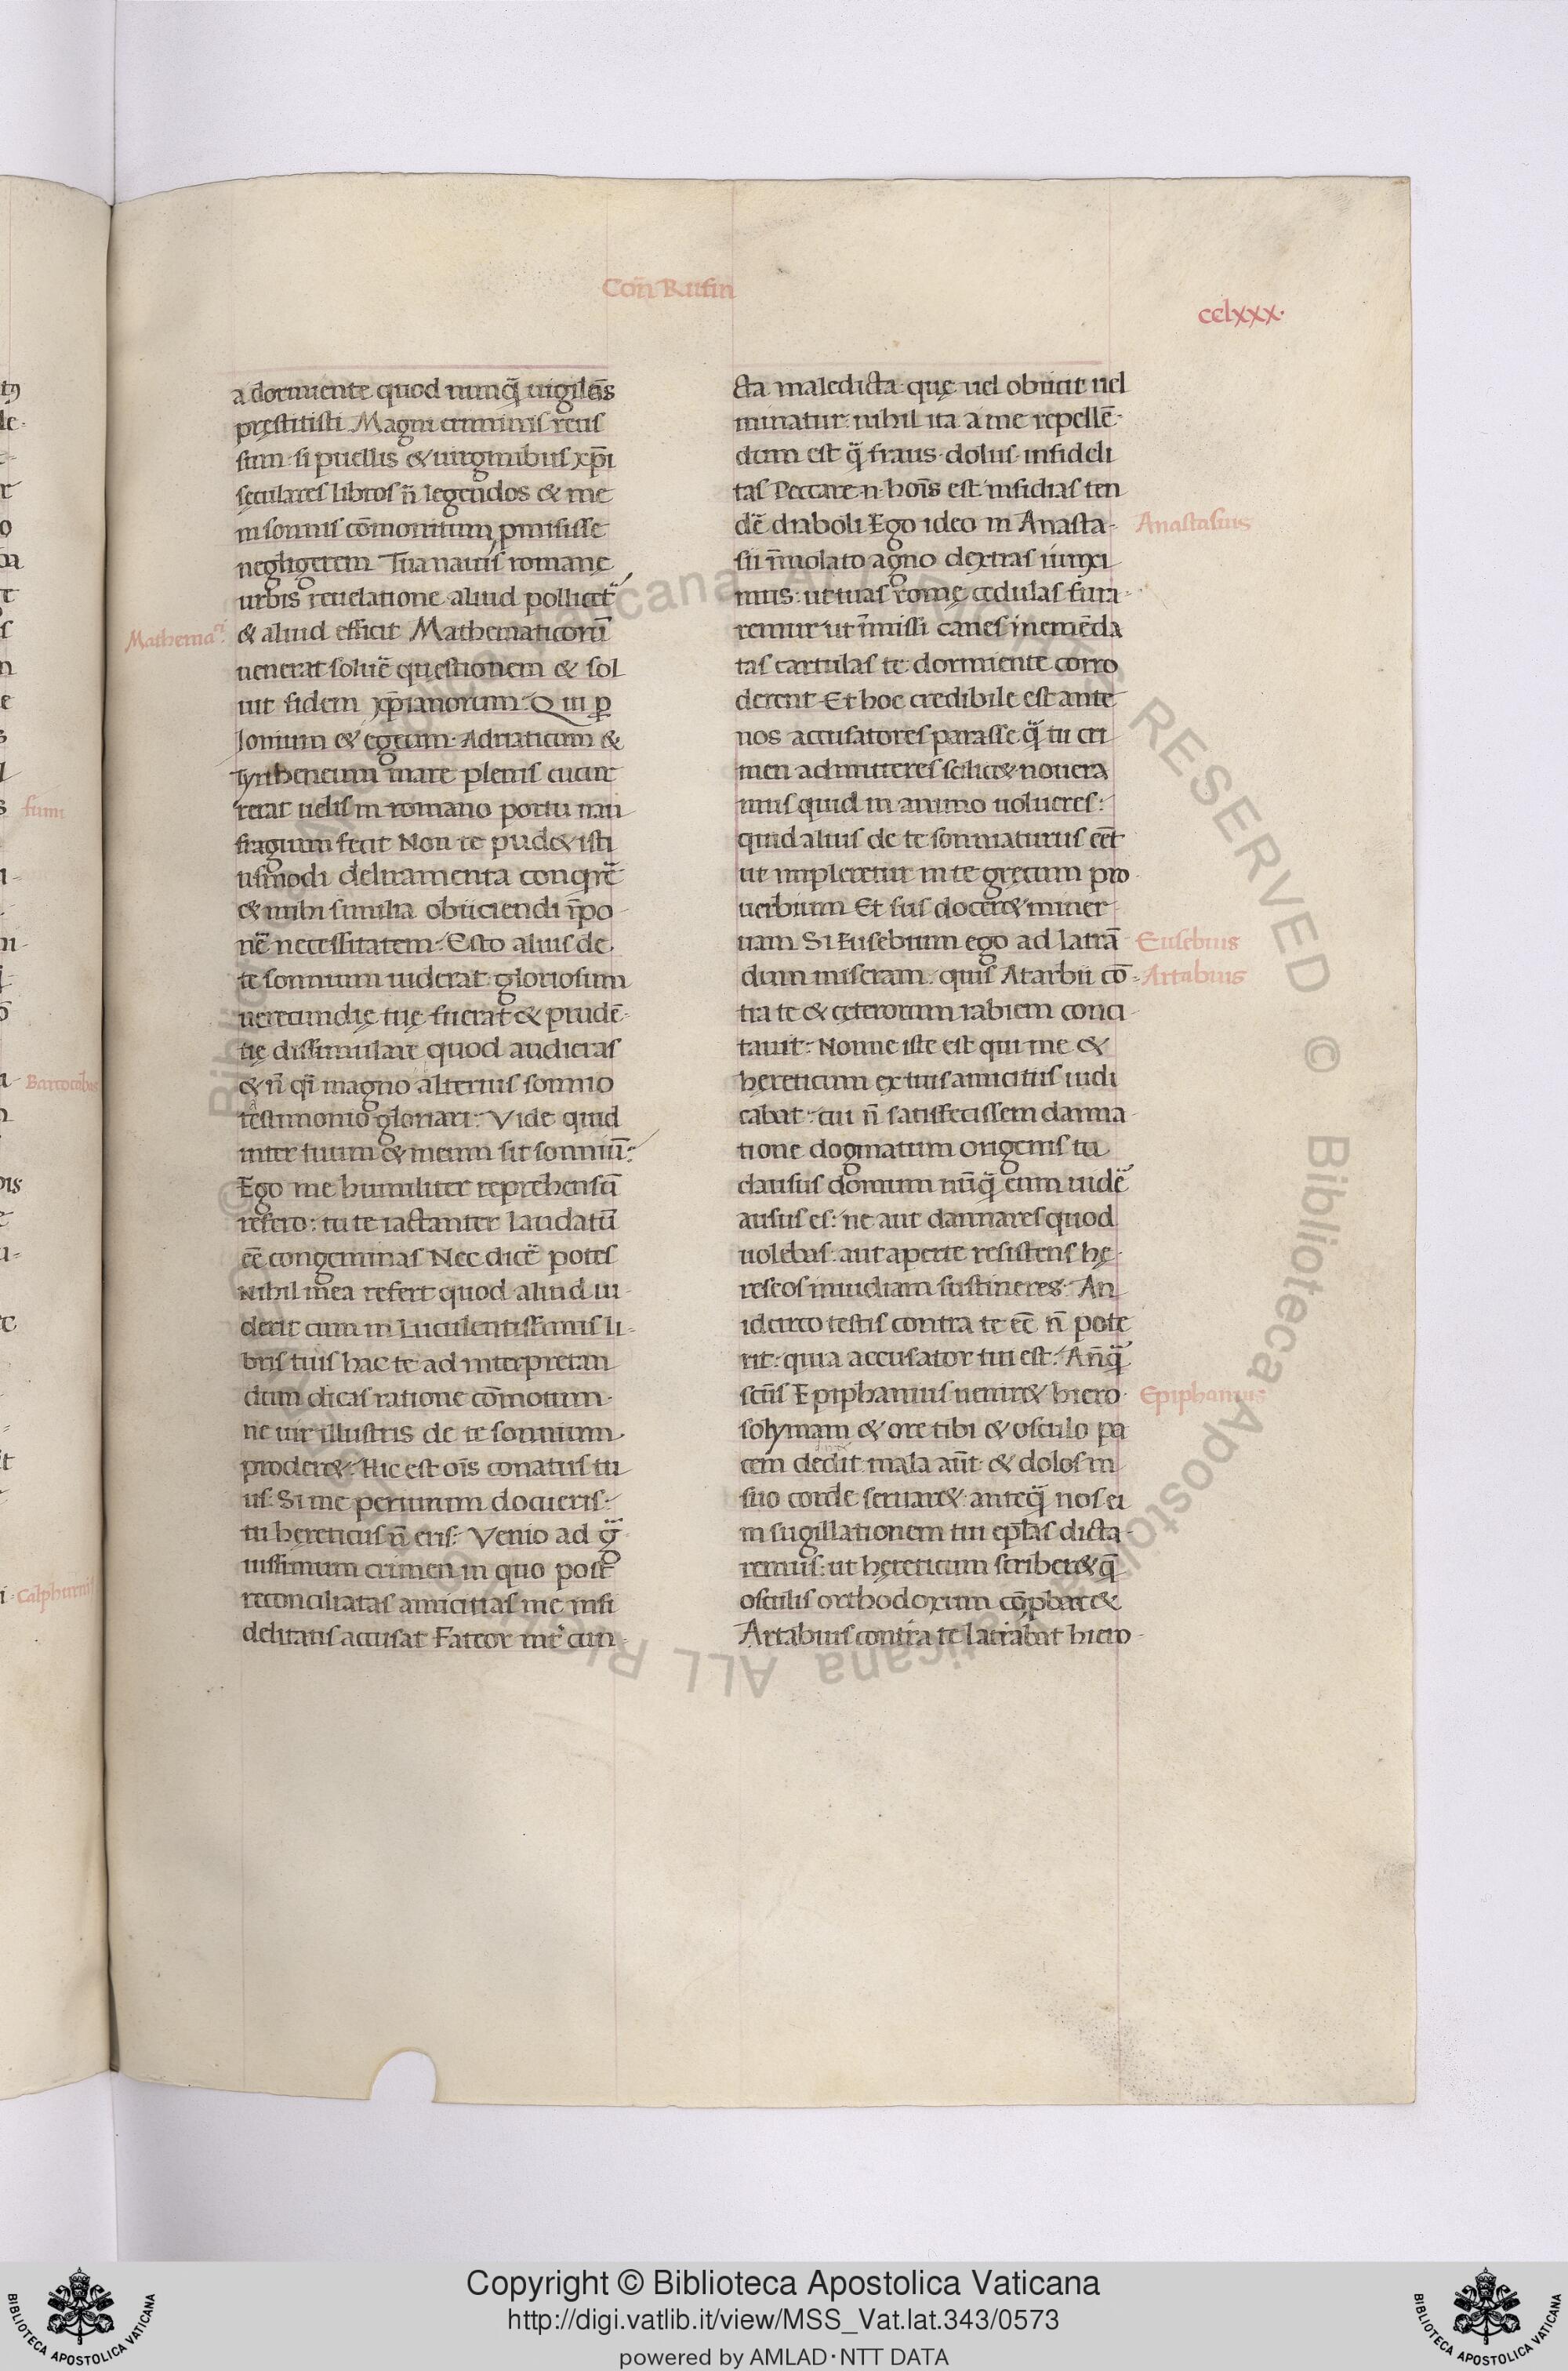 Con̄ Rufin
cclxxx·
a dormiente quod nunq̄ uigilās
pręstitisti Magni criminis reus
sum· si puellis & uirginibus xp̄i
seculares libros n̄ legendos & me
in somnis cōmonitum pmisisse
negligerem Tua nauis romanę
urbis reuelatione aliud pollicet̄
& aliud efficit Mathematicorū
uenerat soluē questionem & sol
uit fidem xp̄ianorum· Qui p̱
Ionium & egeum· Adriaticum &
Tyrrheneum mare plenis cucur
rerat uelis in romano portu nau
fragium fecit Non te pud& isti
usmodi deliramenta conqrē
& mihi similia obiiciendi īpo
nē necessitatem· Esto alius de
te somnium uiderat· gloriosum
uerecundię tuę fuerat & prudē
tię dissimulare quod audieras
& n̄ q̄i magno alterius somno
testimonio gloriari: Vide quid
inter tuum & meum sit somniū:
Ego me humiliter reprehensū
refero: tu te iactanter laudatū
eē congeminas Nec dicē potes
Nihil mea refert quod aliud ui
derit cum in Luculentissimis li
bris tuis hac te ad interpretan
dum dicas ratione cōmotum·
ne uir illustris de te somnium
proder&· Hic est ois̄ conatus tu
us· Si me periurum docueris:
tu hereticus n̄ eris: Venio ad g̃
uissimum crimen in quo post
reconciliatas amicitias me infi
delitatis accusat Fateor int̄ cun
Mathema
cta maledicta· quę uel obiicit uel
minatur: nihil ita a me repellē
dum est q̄ fraus· dolus· infideli
tas Peccare n̄ hois̄ est insidias ten
dē diaboli Ego ideo in Anasta
sii īmolato agno dextras iunxi
mus: ut tuas romę cedulas fura
remur· ut īmissi canes inemēda
tas cartulas te dormiente corro
derent· Et hoc credibile est ante
nos accusatores parasse q̄ tu cri
men admitteres scilic& nouera
mus quid in animo uolueres:
quid alius de te somniaturus eēt
ut impleretur in te gręcum pro
uerbium Et sus docer& miner
uam Si Eusebium ego ad latrā
dum miseram· quis Atarbii cō
tra te & ceterorum rabiem conci
tauit: Nonne iste est qui me &
hereticum ex tuis amicitiis iudi
cabat: cui n̄ satisfecissem damna
tione dogmatum origenis tu
clausus domum nūq̄ eum uidē
ausus es: ne aut damnares quod
uolebas: aut aperte resistens hę
reseos inuidiam sustineres· An
idcirco testis contra te eē n̄ pote
rit: quia accusator tui est: Anq̄
sc̄us Epiphanius uenir& hiero
solymam & ore tibi & osculo pa
cem dedit mala aūt & dolos in
suo corde seruar& anteq̄ nos ei
in sugillationem tui ep̄las dicta
remus: ut hęreticum scriber& q̄
osculis orthodoxum cōpbar&
Artabius contra te latrabat hiero
Anastasius
Eusebius
Artabius
Epiphanius
fum
Calphurni
Copyright © Biblioteca Apostolica Vaticana
http://digi.vatlib.it/view/MSS_Vat.lat.343/0573
powered by AMLAD·NTT DATA
BIBLIOTECA APOSTOLICA VATICANA
BIBLIOTECA APOSTOLICA VATICANA
© Biblioteca Apostolica Vaticana ALL RIGHTS RESERVED © Biblioteca Apostolica Vaticana ALL RIGHTS RESERVED